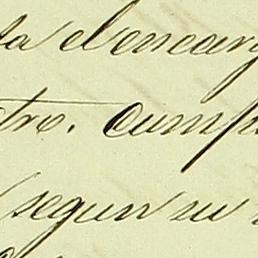 sa el encarg
tro. cump
segun su